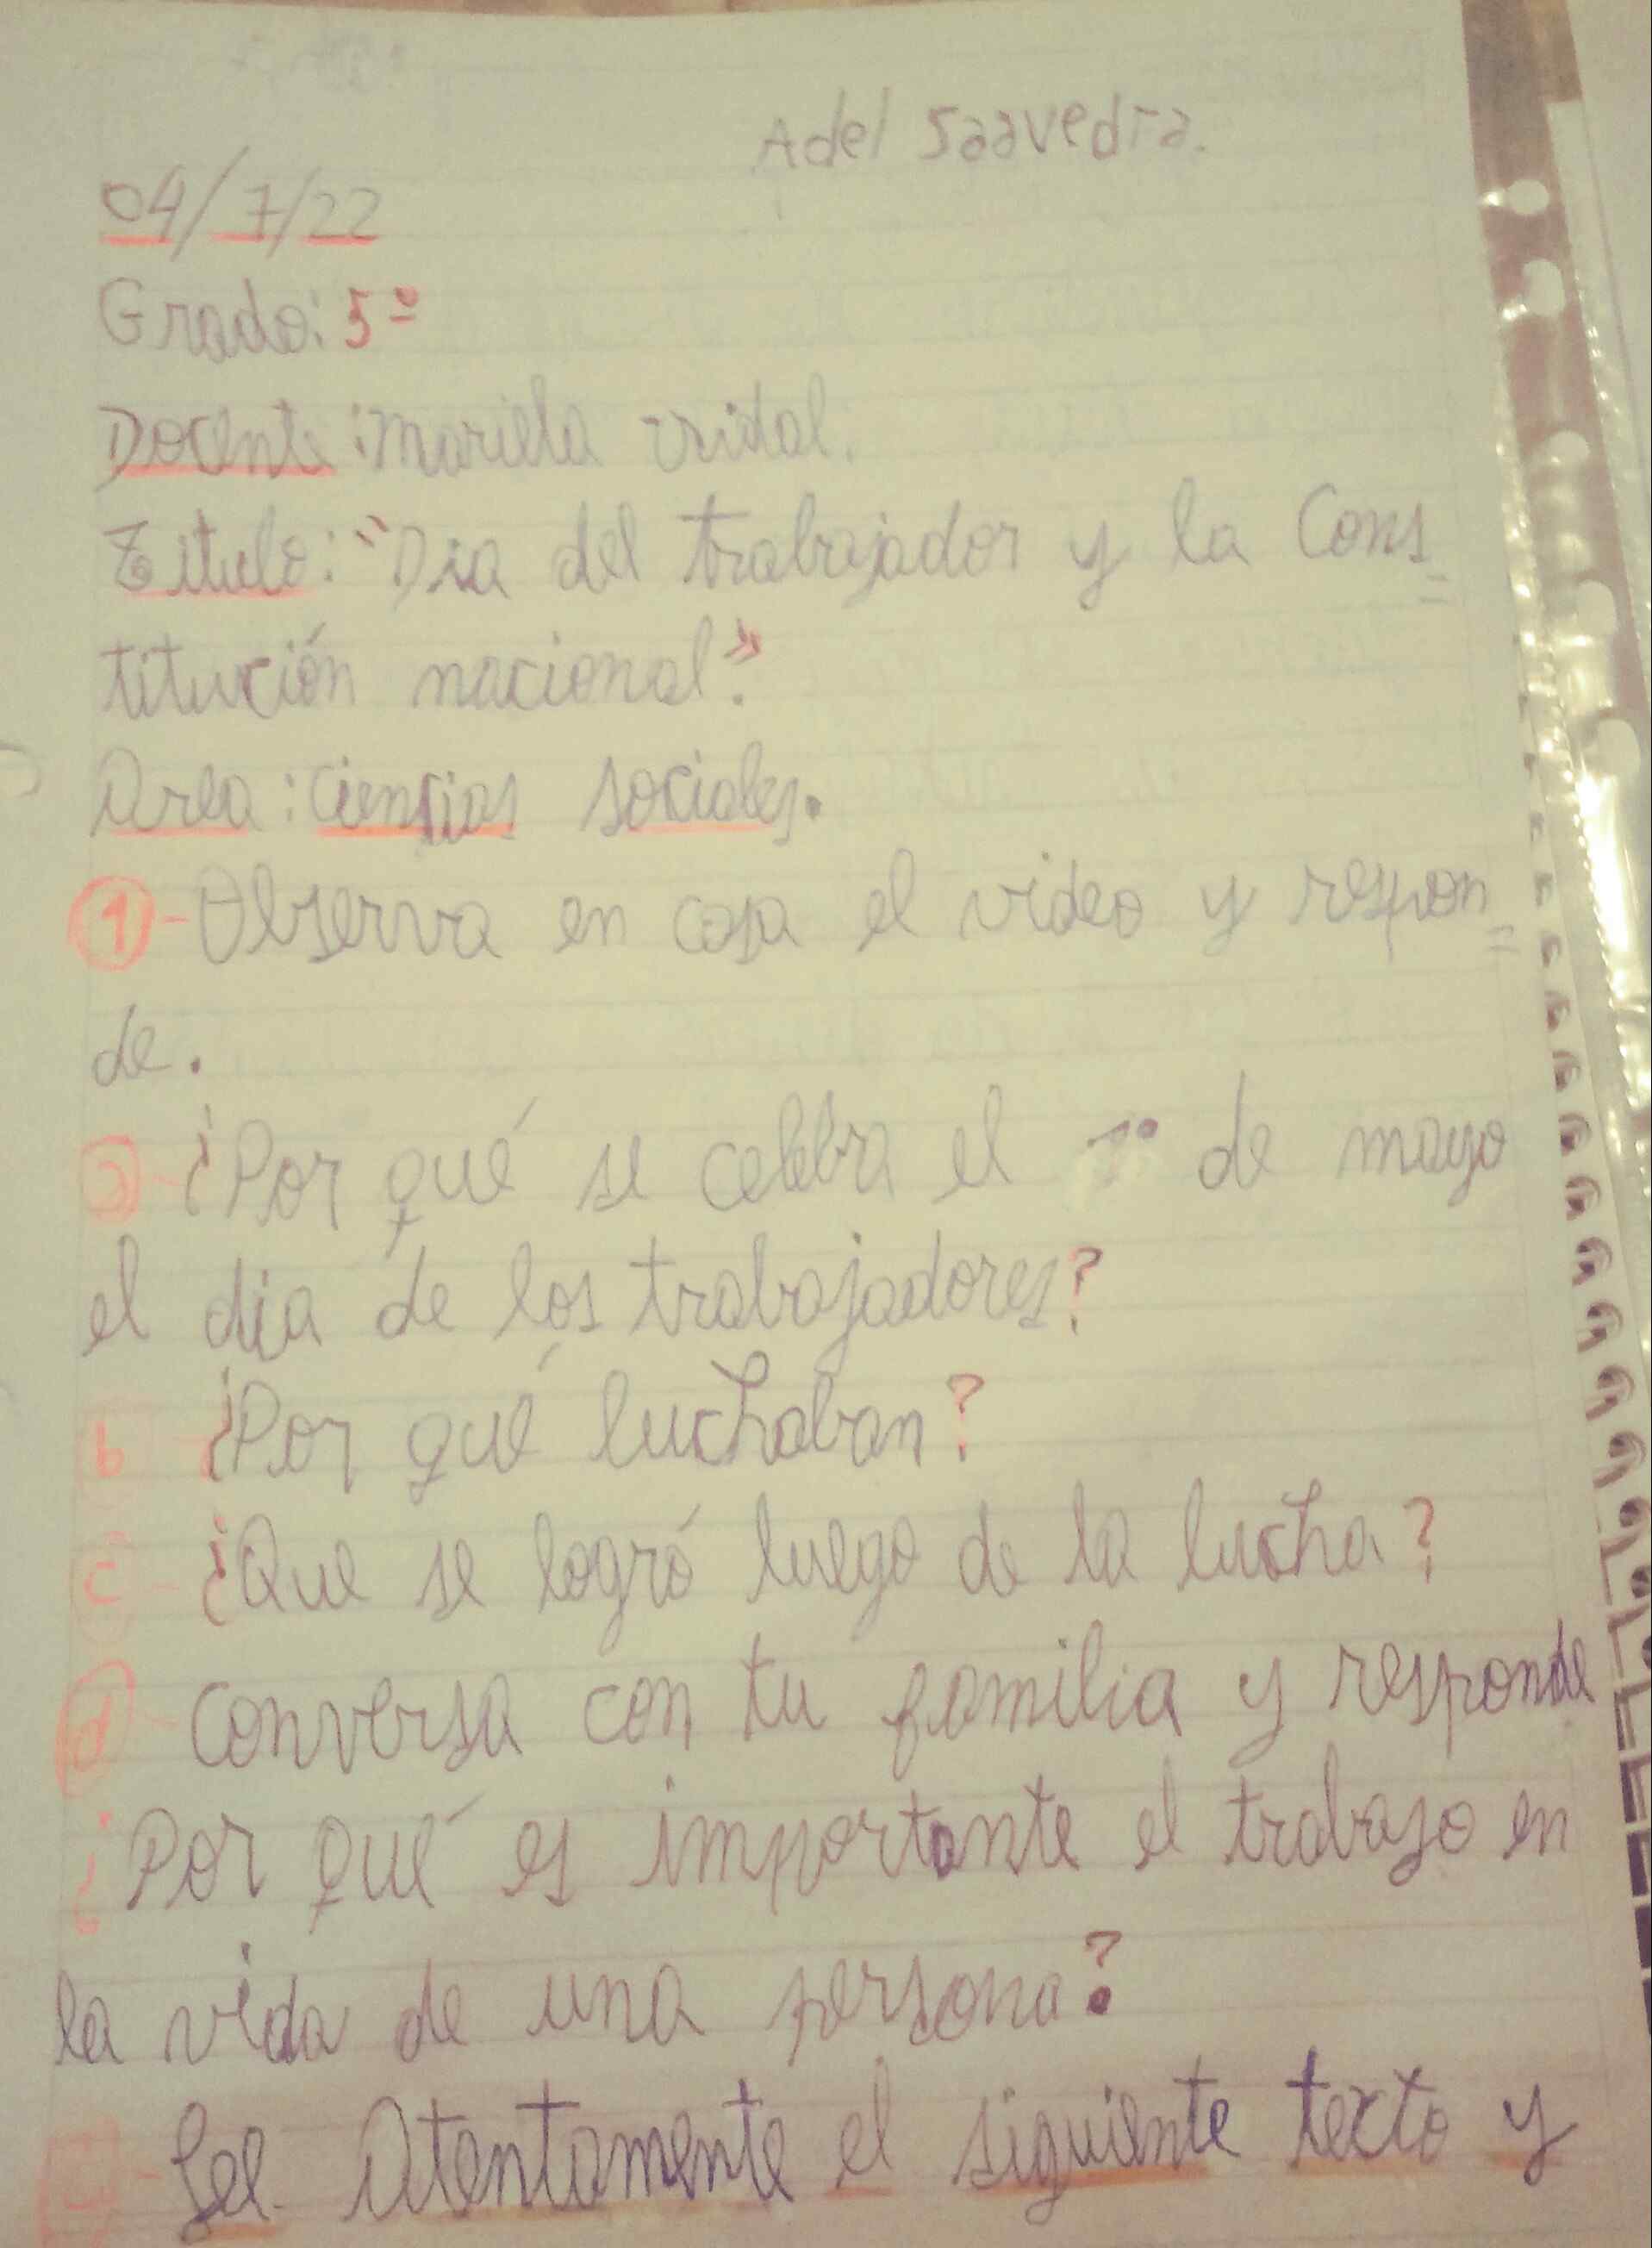 Adel Saavedra.
04/7/22
Grado: 5º
Docente: Mariela vidal.
Titulo: "Dia del trabajador y la Cons
titución nacional".
Area: Ciencias sociales.
1- Observa en casa el video y respon
de.
a- ¿Por qué se celebra el 1º de mayo
el dia de los trabajadores?
b- ¿Por qué luchaban?
c- ¿Que se logró luego de la lucha?
d- Conversa con tu familia y responde
¿Por qué es importante el trabajo en
la vida de una persona?
- Lee Atentamente el siguiente texto y